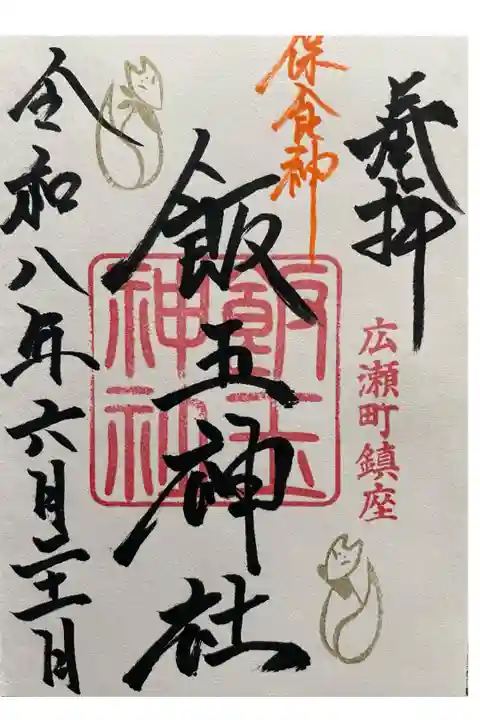 奉拝
広瀬町鎮座
保食神
飯玉神社
飯玉
神社
令和八年六月二十一日